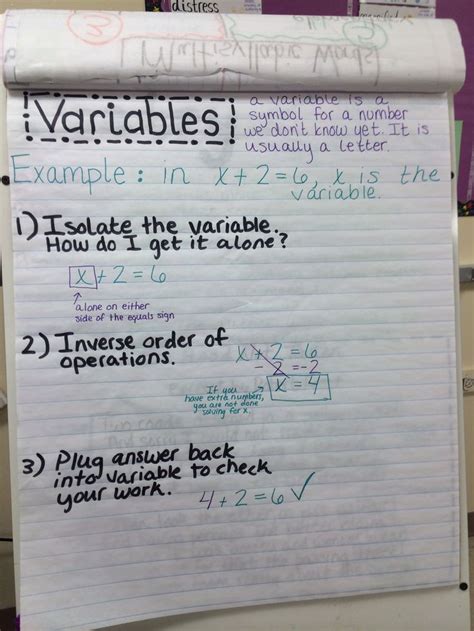 distress
3
Multisyllabic Words
Variables
a variable is a
symbol for a number
we don't know yet. It is
usually a letter.
Example: in x+2=6, x is the
variable.
1) Isolate the variable.
How do I get it alone?
x+2=6
alone on either
side of the equals sign
2) Inverse order of
operations.
x+2=6
-2=-2
x=4
If you
have extra numbers,
you are not done
solving for x.
3) Plug answer back
into variable to check
your work.
4+2=6✓